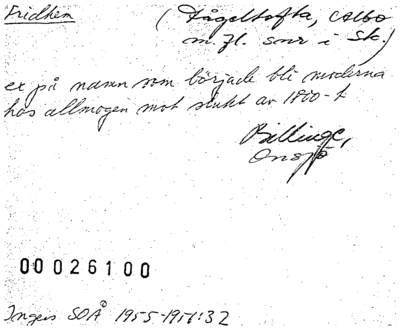 Fridhem (Fågeltofta, Albo
m.fl. snr i Sk.)
ex på namn som började bli moderna
hos allmogen mot slutet av 1800-t
Billinge,
Onsjö
00 026100
Ingers SOÅ 1955-1956:32